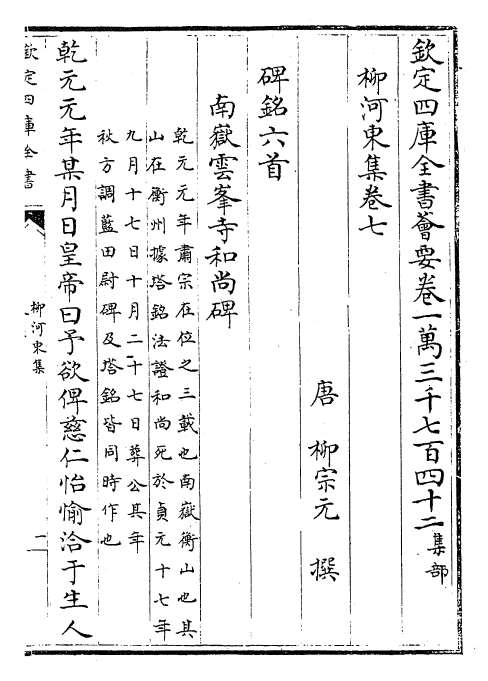 欽定四庫全書薈要卷一萬三千七百四十二集部
柳河東集卷七
唐　柳宗元　撰
碑銘六首
南嶽雲峯寺和尚碑
乾元元年肅宗在位之三載也南嶽衡山也其
山在衡州據塔銘法證和尚死於貞元十七年
九月十七日十月二十七日葬公其年
秋方調藍田尉碑及塔銘皆同時作也
乾元元年某月日皇帝曰予欲俾慈仁怡愉洽于生人
欽定四庫全書
柳河東集